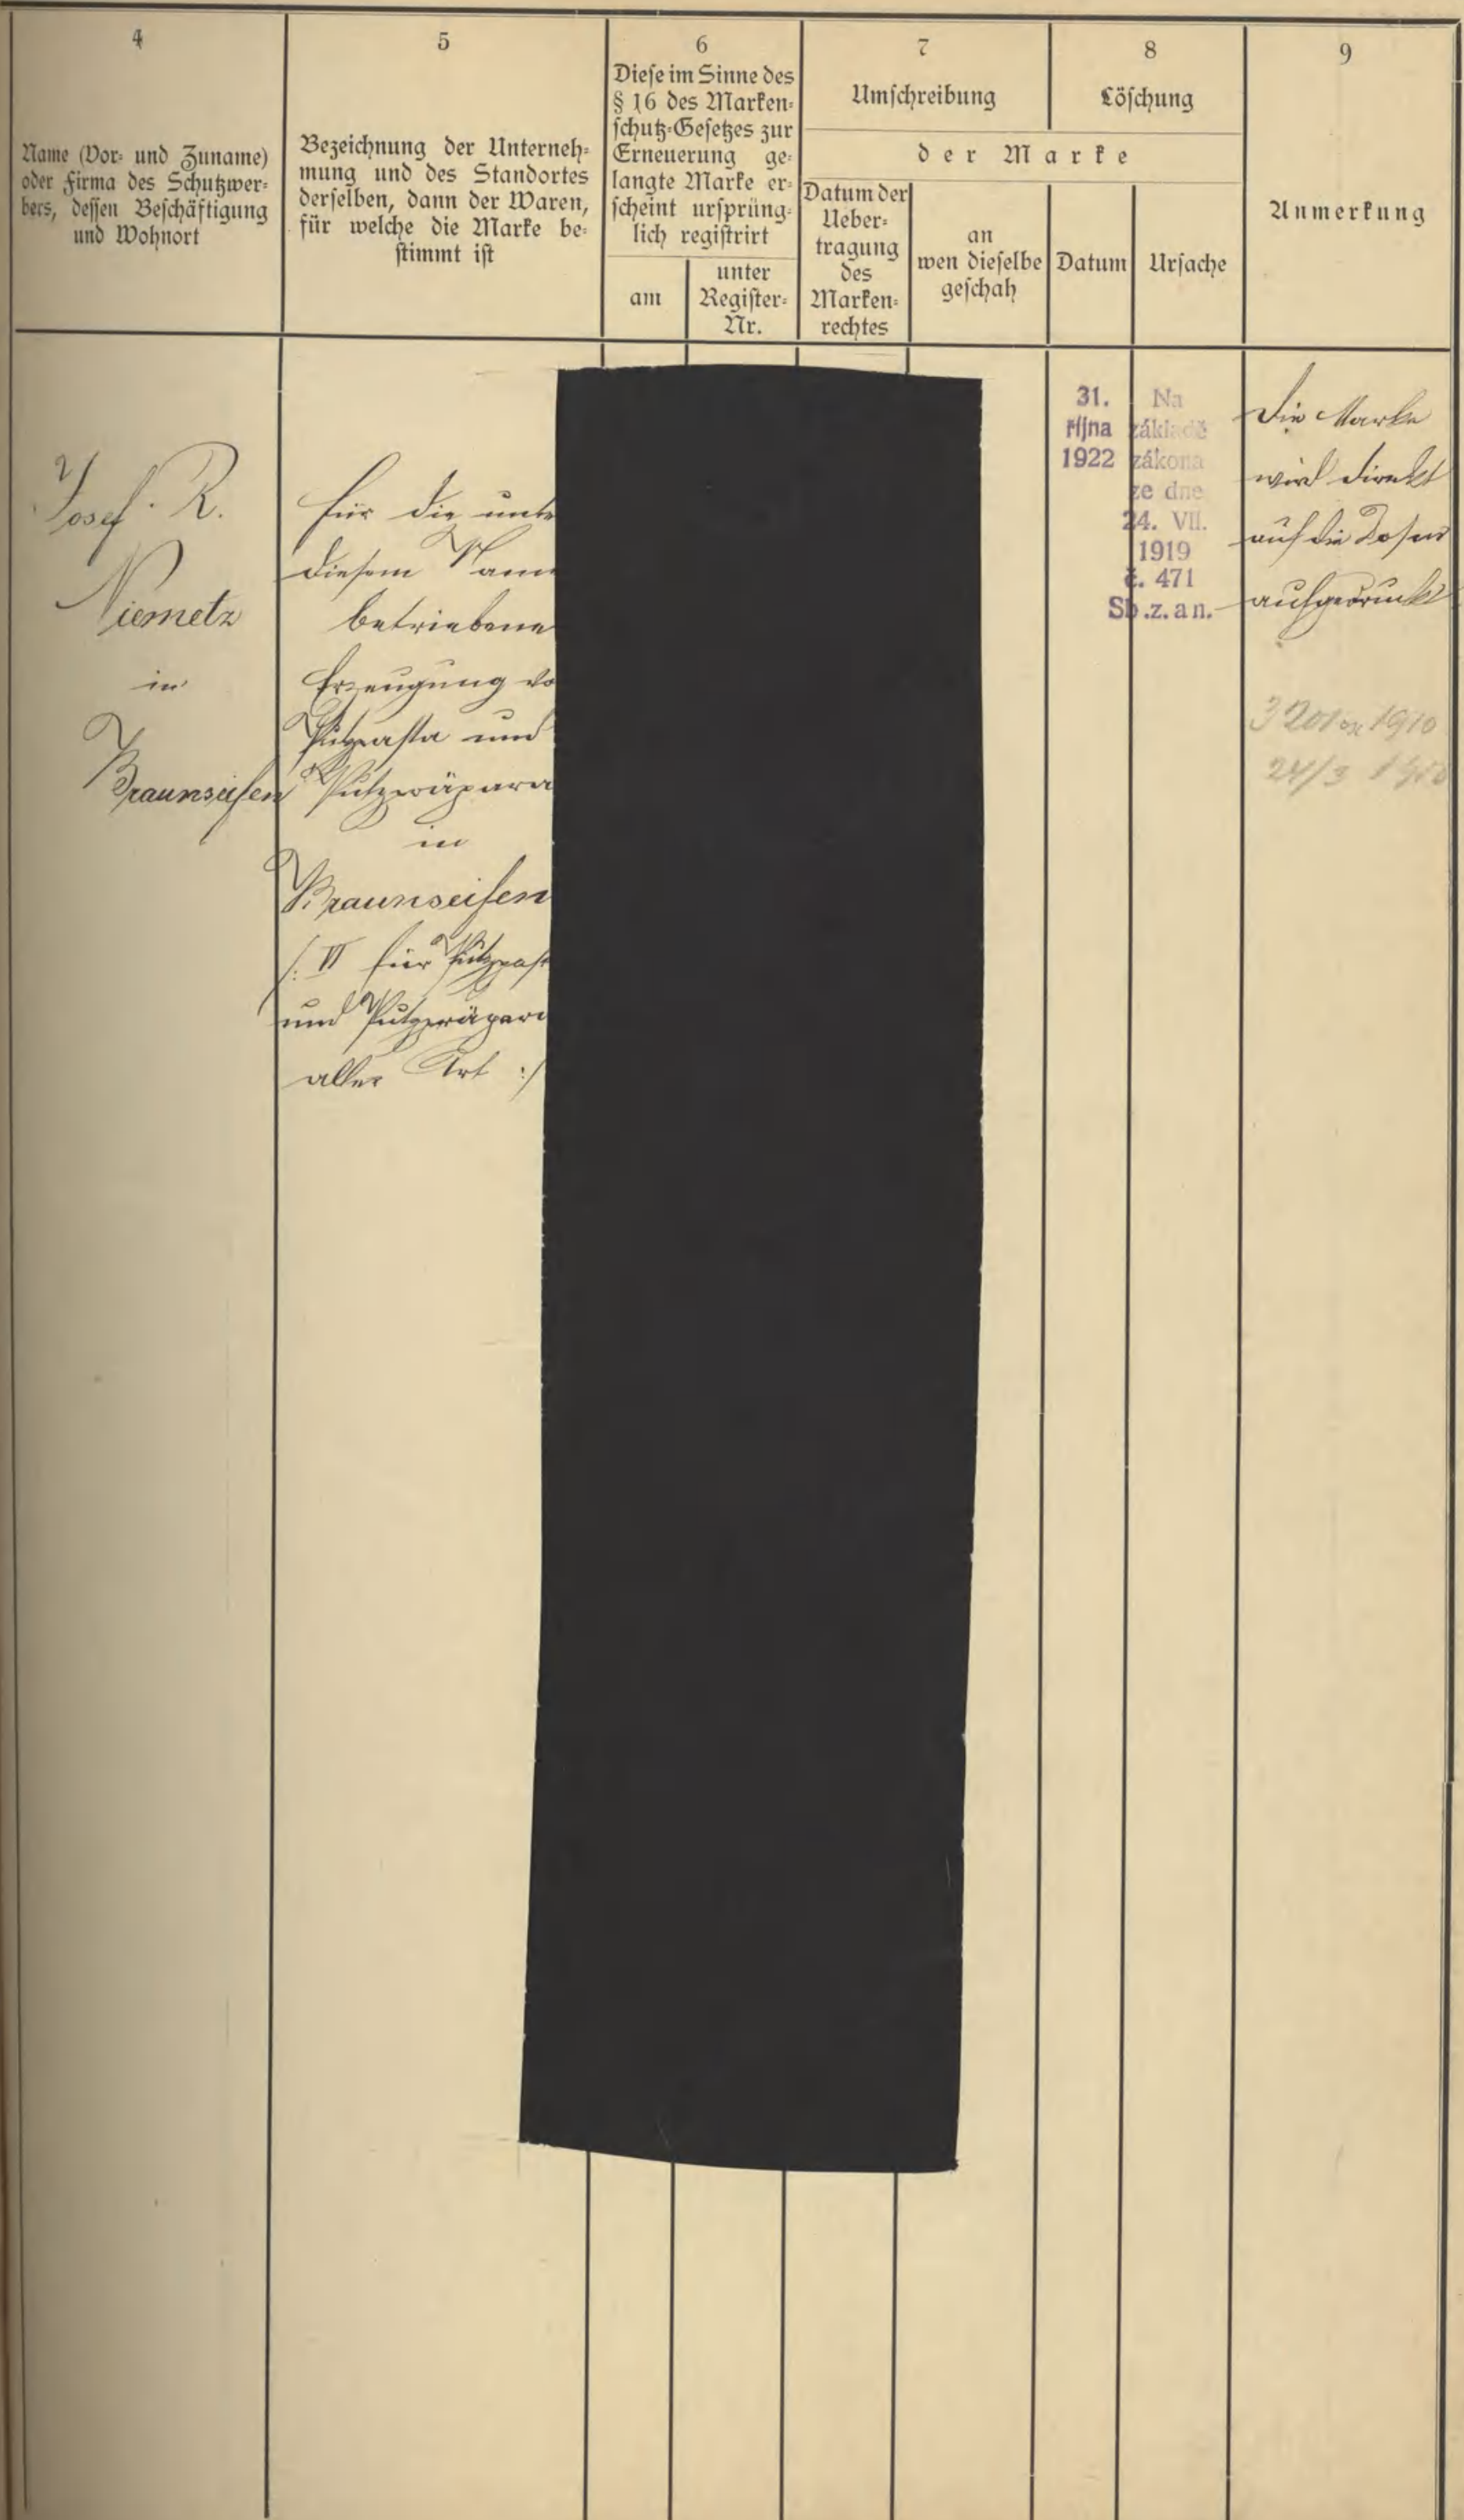 4
Name (Vor- und Zuname)
oder Firma des Schutzwer-
bers, dessen Beschäftigung
und Wohnort
5
Bezeichnung der Unterneh-
mung und des Standortes
derselben, dann der Waren,
für welche die Marke be-
stimmt ist
6
Diese im Sinne des
§ 16 des Marken-
schutz-Gesetzes zur
Erneuerung ge-
langte Marke er-
scheint ursprüng-
lich registrirt
am
unter
Register-
Nr.
7
Umschreibung
8
Löschung
der Marke
Datum der
Ueber-
tragung
des
Marken-
rechtes
an
wen dieselbe
geschah
Datum
Ursache
9
Anmerkung
Josef R.
Niemetz
in
Braunseifen
für die unte
diesem Name
betriebene
Erzeugung vo
Putzpasta und
Putzpräpara
in
Braunseifen
/: VI für Putzpast
und Putzpräpara
aller Art :/
31.
října
1922
Na
základě
zákona
ze dne
24. VII.
1919
č. 471
Sb.z.an.
Die Marke
wird direkt
auf die Dosen
aufgedruckt
24/3